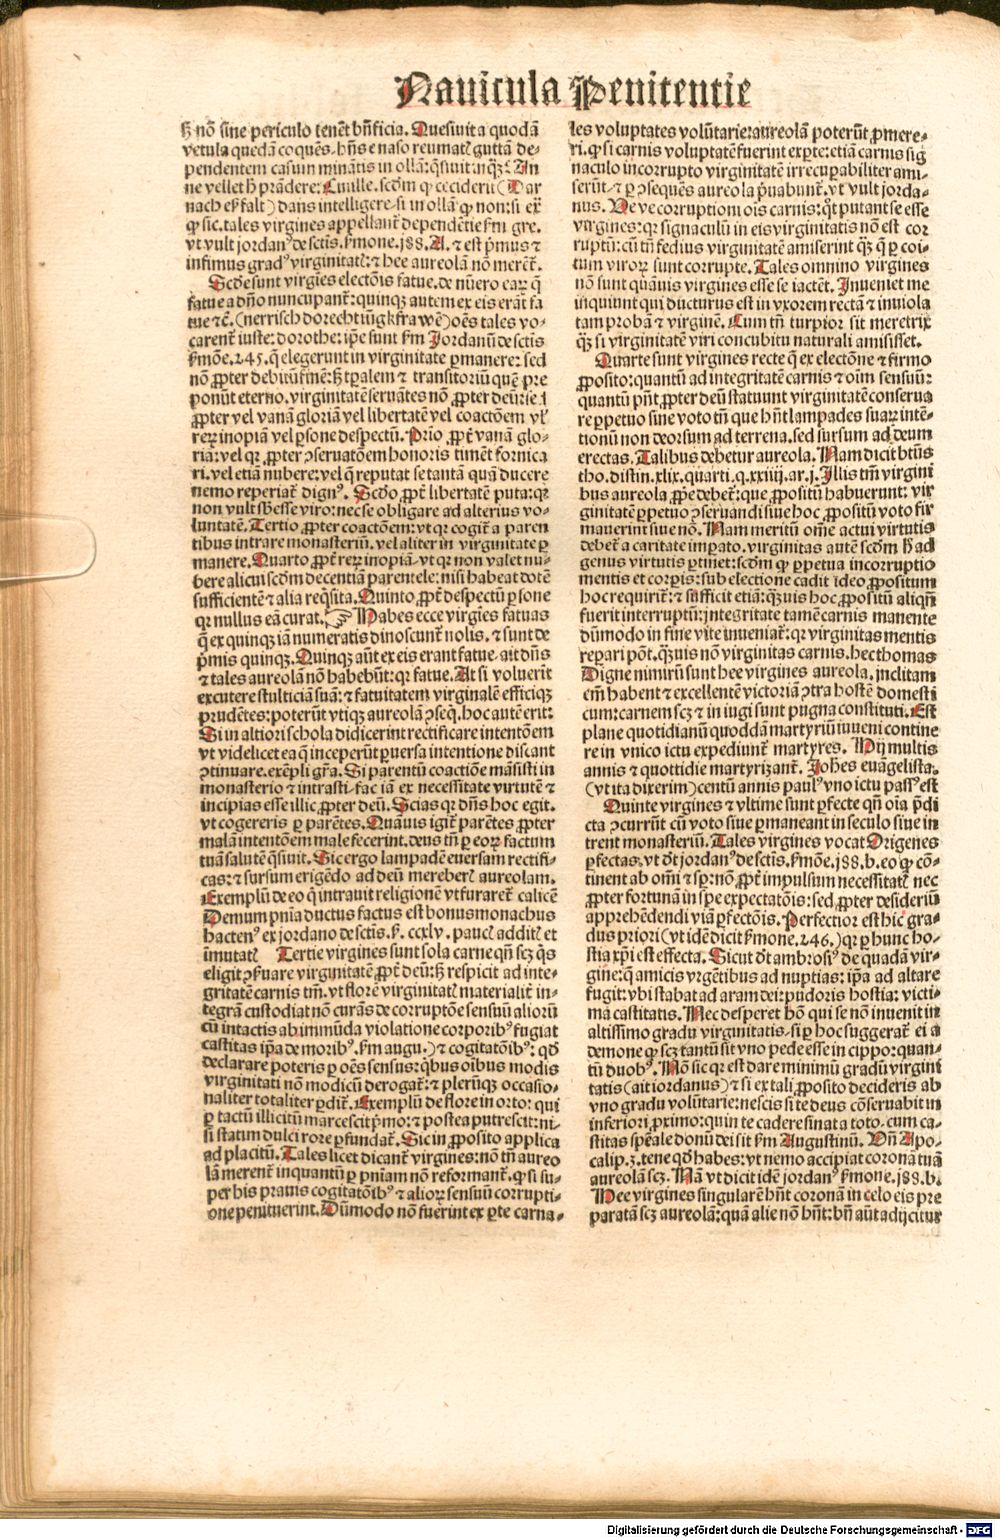 Nauicula Penitentie
hͦ nō sine periculo tenēt bn̄ficia. Quesiuit a quodā
vetula quedā coquēs, hn̄s e naso reumatꝭ guttā de-
pendentem casum minātis in ollā: q̄siuit inqꝫ: An
ne vellet h̄ prādere: Cui ille. scd̄m ꝙ ceciderit (Dar
nach eß falt) dans intelligere, si in ollā ꝙ non: si ex̄
ꝙ sic. tales virgines appellant̄ dependētie s̄m gre.
vt vult jordanꝰ de sctis. s̄mone. 188. A. ⁊ est p̄mus ⁊
infimus gradꝰ virginitatꝭ: ⁊ hee aureolā nō merēt̄.
Scd̄e sunt virgīes electōis fatue. de nūero earꝝ q̄
fatue a dn̄o nuncupant̄: quinqꝫ autem ex eis erāt fa
tue ⁊c̄. (nerrisch dorecht iūgkfrawē) oēs tales vo-
carent̄ iuste: dorothe: ip̄e sunt s̄m Jordanū de sctis
s̄mōe. 245. q̄ elegerunt in virginitate ꝑmanere: sed
nō ꝓpter debitū finē: hͦ tꝑalem ⁊ transitoriū quē pre
ponūt eterno. virginitatē seruātes nō ꝓpter deū: s̄e
ꝓpter vel vanā gloriā vel libertatē vel coactōem vl̄
reꝝ inopiā vel ꝑsone despectū. Prīo ꝓpt̄ vanā glo-
riā: vel qꝛ ꝓpter ↄseruatōem honoris timēt fornica
ri. vel etiā nubere: vel q̄ reputat se tantā quā ducere
nemo reperiat̄ dignꝰ. Scd̄o ꝓpt̄ libertatē puta: qꝛ
non vult sb̄esse viro: nec se obligare ad alterius vo-
luntatē. Tertio ꝓpter coactōem: vt qꝛ cogit̄ a paren
tibus intrare monasteriū. vel aliter in virginitate ꝑ
manere. Quarto ꝓpt̄ reꝝ inopiā: vt qꝛ non valet nu-
bere alicui scd̄m decentiā parentele: nisi habeat dotē
sufficientē ⁊ alia req̄sita. Quinto ꝓpt̄ despectū ꝑsone
qꝛ nullus eā curat. ☞ Habes ecce virgīes fatuas
q̄ ex quinqꝫ iā numeratis dinoscunt̄ nolis. ⁊ sunt de
p̄mis quinqꝫ. Quinqꝫ aūt ex eis erant fatue. ait dn̄s
⁊ tales aureolā nō habebūt: qꝛ fatue. At si voluerit
excutere stulticiā suā: ⁊ fatuitatem virginalē efficiqꝫ
prudētes: poterūt vtiqꝫ aureolā ↄseq. hoc autē erit:
Si in altiori schola didicerint rectificare intentōem
vt videlicet ea q̄ inceperūt ꝑuersa intentione discant
ↄtinuare. exēpli gr̄a. Si parentū coactiōe māsisti in
monasterio ⁊ intrasti, fac iā ex necessitate virtutē ⁊
incipias esse illic ꝓpter deū. Scias qꝛ dn̄s hoc egit.
vt cogereris ꝑ parētes. Quāuis igit̄ parētes ꝓpter
malā intentōem male fecerint. deus tn̄ ꝑ eoꝝ factum
tuā salutē q̄siuit. Sic ergo lampadē euersam rectifi-
cas: ⁊ sursum erigēdo ad deū mereberꝭ aureolam.
Exemplū de eo q̄ intrauit religionē vt furaret̄ calicē
Demum pn̄ia ductus factus est bonus monachus
hactenꝰ ex jordano de sctis. s̄. ccxlv. paucꝭ additꝭ et
īmutatꝭ Tertie virgines sunt sola carne qn̄ scꝫ q̄s
eligit ↄs̄uare virginitatē ꝓpt̄ deū: hͦ respicit ad inte-
gritatē carnis tm̄. vt florē virginitatꝭ materialit̄ in-
tegrā custodiat nō curās de corruptōe sensuū alioru
cū intactis ab immūda violatione corporibꝰ fugiat
castitas ip̄a de moribꝰ. s̄m augu.) ⁊ cogitatōibꝰ: qd̄
declarare poteris ꝑ oēs sensus: q̄bus oībus modis
virginitati nō modicū derogat̄: ⁊ plerūqꝫ occasio-
naliter totaliter ꝑdit̄. Exemplū de flore in orto: qui
ꝑ tactū illicitū marcescit p̄mo: ⁊ postea putrescit: ni-
si statum dulci rore ꝑfundat̄. Sic in ꝓposito applica
ad placitū. Tales licet dicant̄ virgines: nō tn̄ aureo
lā merent̄ inquantū ꝑ pn̄iam nō reformant̄. ꝙ si su-
per his prauis cogitatōibꝰ ⁊ alioꝝ sensuū corrupti-
one penituerint. Dūmodo nō fuerint ex ꝑte carna-
les voluptates volūtarie: aureolā poterūt ꝓmere-
ri. ꝙ si carnis voluptatē fuerint exꝑte: etiā carnis sig
naculo incorrupto virginitatē irrecuꝑabiliter ami-
serūt. ⁊ ꝑ ↄseqūes aureola p̄uabunt̄. vt vult jorda-
nus. De ve corruptioni oīs carnis: qꝛ putant se esse
virgines: qꝛ signaculū in eis virginitatis nō est cor
ruptū: cū tn̄ fedius virginitatē amiserint qꝫ q̄ ꝑ coi-
tum viroꝝ sunt corrupte. Tales omnino virgines
nō sunt quāuis virgines esse se iactēt. Inueniet me
inquiunt qui ducturus est in vxorem rectā ⁊ inuiola
tam probā ⁊ virginē. Cum tn̄ turpior sit meretrix
qꝫ si virginitatē viri concubitu naturali amisisset.
Quarte sunt virgines recte q̄ ex electōne ⁊ firmo
ꝓposito: quantū ad integritatē carnis ⁊ oīm sensuū:
quantū pn̄t, ꝓpter deū statuunt virginitatē conserua
re ꝑpetuo sine voto tn̄ que hn̄t lampades suaꝝ intē-
tionū non deorsum ad terrena. sed sursum ad deum
erectas. Talibus debetur aureola. Nam dicit btūs
tho. distin. xlix. quarti. q. xxiiij. ar. j. Illis tm̄ virgini
bus aureola ꝓp̄e debet̄: que ꝓpositū habuerunt: vir
ginitatē ꝑpetuo ↄseruandi siue hoc ꝓpositū voto fir
mauerint siue nō. Nam meritū om̄e actui virtutis
debet̄ a caritate imꝑato. virginitas autē scd̄m h̄ ad
genus virtutis ꝑtinet: scd̄m ꝙ ꝑpetua incorruptio
mentis et corꝑis: sub electione cadit ideo ꝓpositum
hoc requirit̄: ⁊ sufficit etiā: qꝫuis hoc ꝓpositū aliqn̄
fuerit interruptū: integritate tamē carnis manente
dūmodo in fine vite inueniat̄: qꝛ virginitas mentis
reꝑari pōt. qꝫuis nō virginitas carnis. hec thomas
Digne nimirū sunt hee virgines aureola. inclitam
em̄ habent ⁊ excellentē victoriā ↄtra hostē domesti
cum: carnem scꝫ ⁊ in iugi sunt pugna constituti. Est
plane quotidianū quoddā martyriū iuueni contine
re in vnico ictu expediunt̄ martyres. Hij multis
annis ⁊ quottidie martyrizant̄. Joh̄es euāgelista:
(vt ita dixerim) centū annis paulꝰ vno ictu passꝰ est
Quinte virgines ⁊ vltime sunt ꝑfecte qn̄ oīa p̄di
cta ↄcurrūt cū voto siue ꝑmaneant in seculo siue in
trent monasteriū. Tales virgines vocat Origenes
ꝑfectas. vt dt̄ jordanꝰ de sctis. s̄mōe. 188. b. eo ꝙ cō-
tinent ab om̄i ⁊ sp: nō ꝓpt̄ impulsium necessitatꝭ nec
ꝓpter fortunā in spe expectatōis: sed ꝓpter desideriū
apprehēdendi viā ꝑfectōis. Perfectior est hic gra-
dus priori (vt idē dicit s̄mone. 246.) qꝛ ꝑ hunc ho-
stia xp̄i est effecta. Sicut dt̄ ambrosiꝰ de quadā vir-
gine: q̄ amicis vrgētibus ad nuptias: ip̄a ad altare
fugit: vbi stabat ad aram dei: pudoris hostia: victi-
ma castitatis. Nec desperet hō qui se nō inuenit in
altissimo gradu virginitatis. si ꝑ hoc suggerat̄ ei a
demone ꝙ scꝫ tantū sit vno pede esse in cippo: quan-
tū duobꝰ. Nō sic qꝛ est dare minimū gradū virgini
tatis (ait iordanus) ⁊ si ex tali ꝓposito decideris ab
vno gradu volūtarie: nescis si te deus cōseruabit in
inferiori ꝓximo: quin te cadere sinat a toto. cum ca-
stitas sp̄eale donū dei sit s̄m Augustinū. Vn̄ Apo-
calip. 3. tene qd̄ habes: vt nemo accipiat coronā tuā
aureolā scꝫ. Nā vt dicit idē jordanꝰ s̄mone. 188. b.
Hee virgines singularē hn̄t coronā in celo eis pre
paratā scꝫ aureolā: quā alie nō hn̄t: bn̄ aūt adijcitur
Digitalisierung gefördert durch die Deutsche Forschungsgemeinschaft - DFG